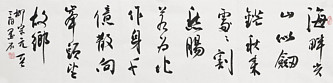 海畔尖
山似劍
鋩秋來
處々割
愁腸
若為化
作身千
億散向
峯頭望
故鄉
柳宗元